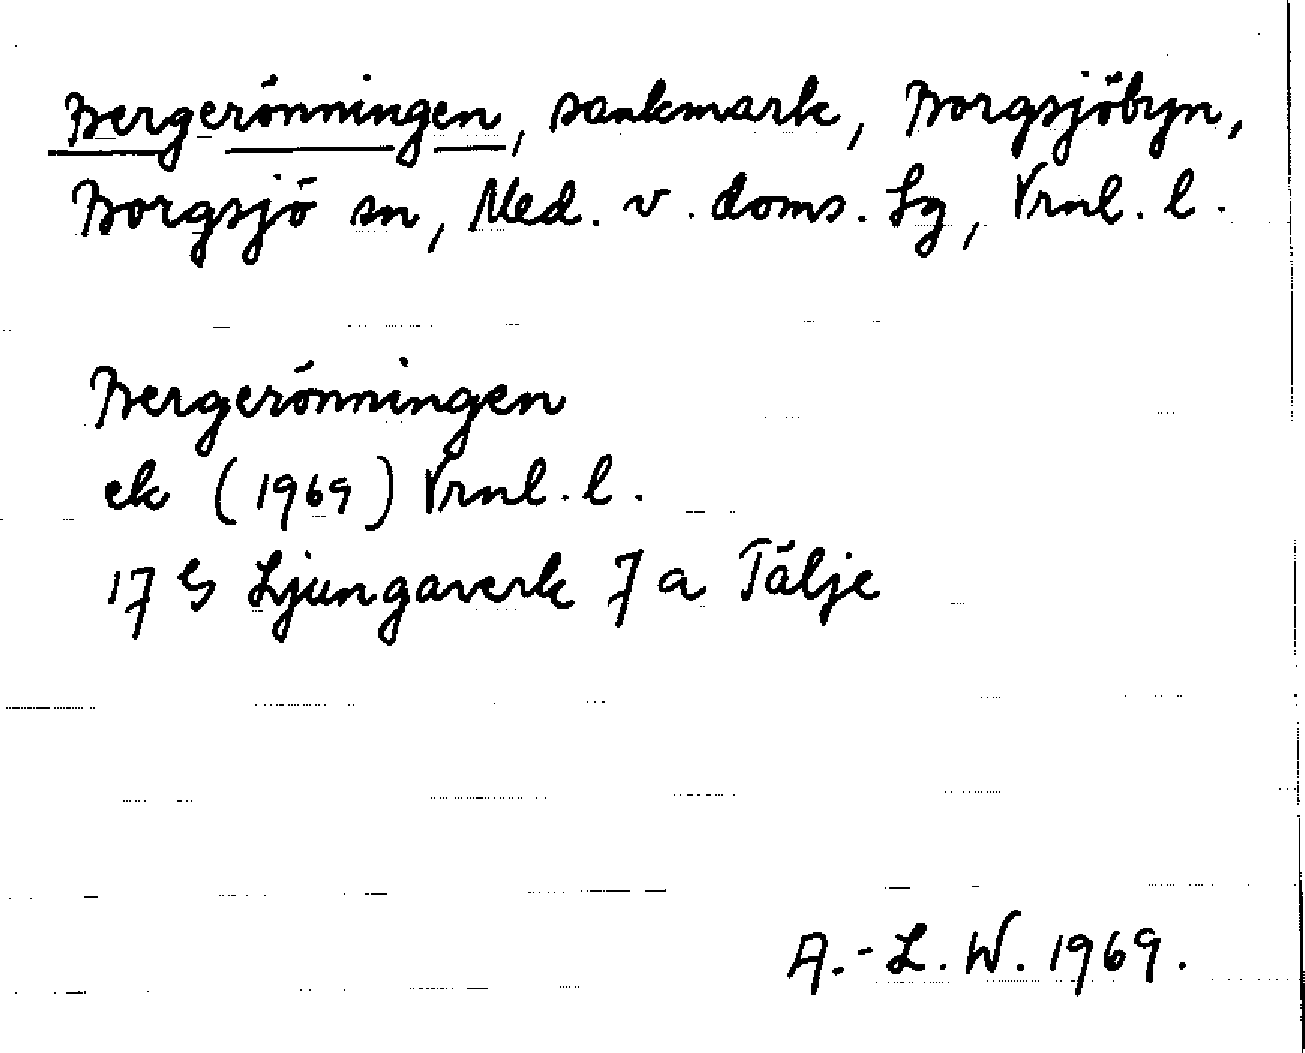 Bergerönningen, sankmark, Borgsjöbyn,
Borgsjö sn, Med. v. doms. lg, Vrnl. l.
Bergerönningen
ek (1969) Vrnl. l.
17 G Ljungaverk 7 a Tälje
A.-L. W. 1969.